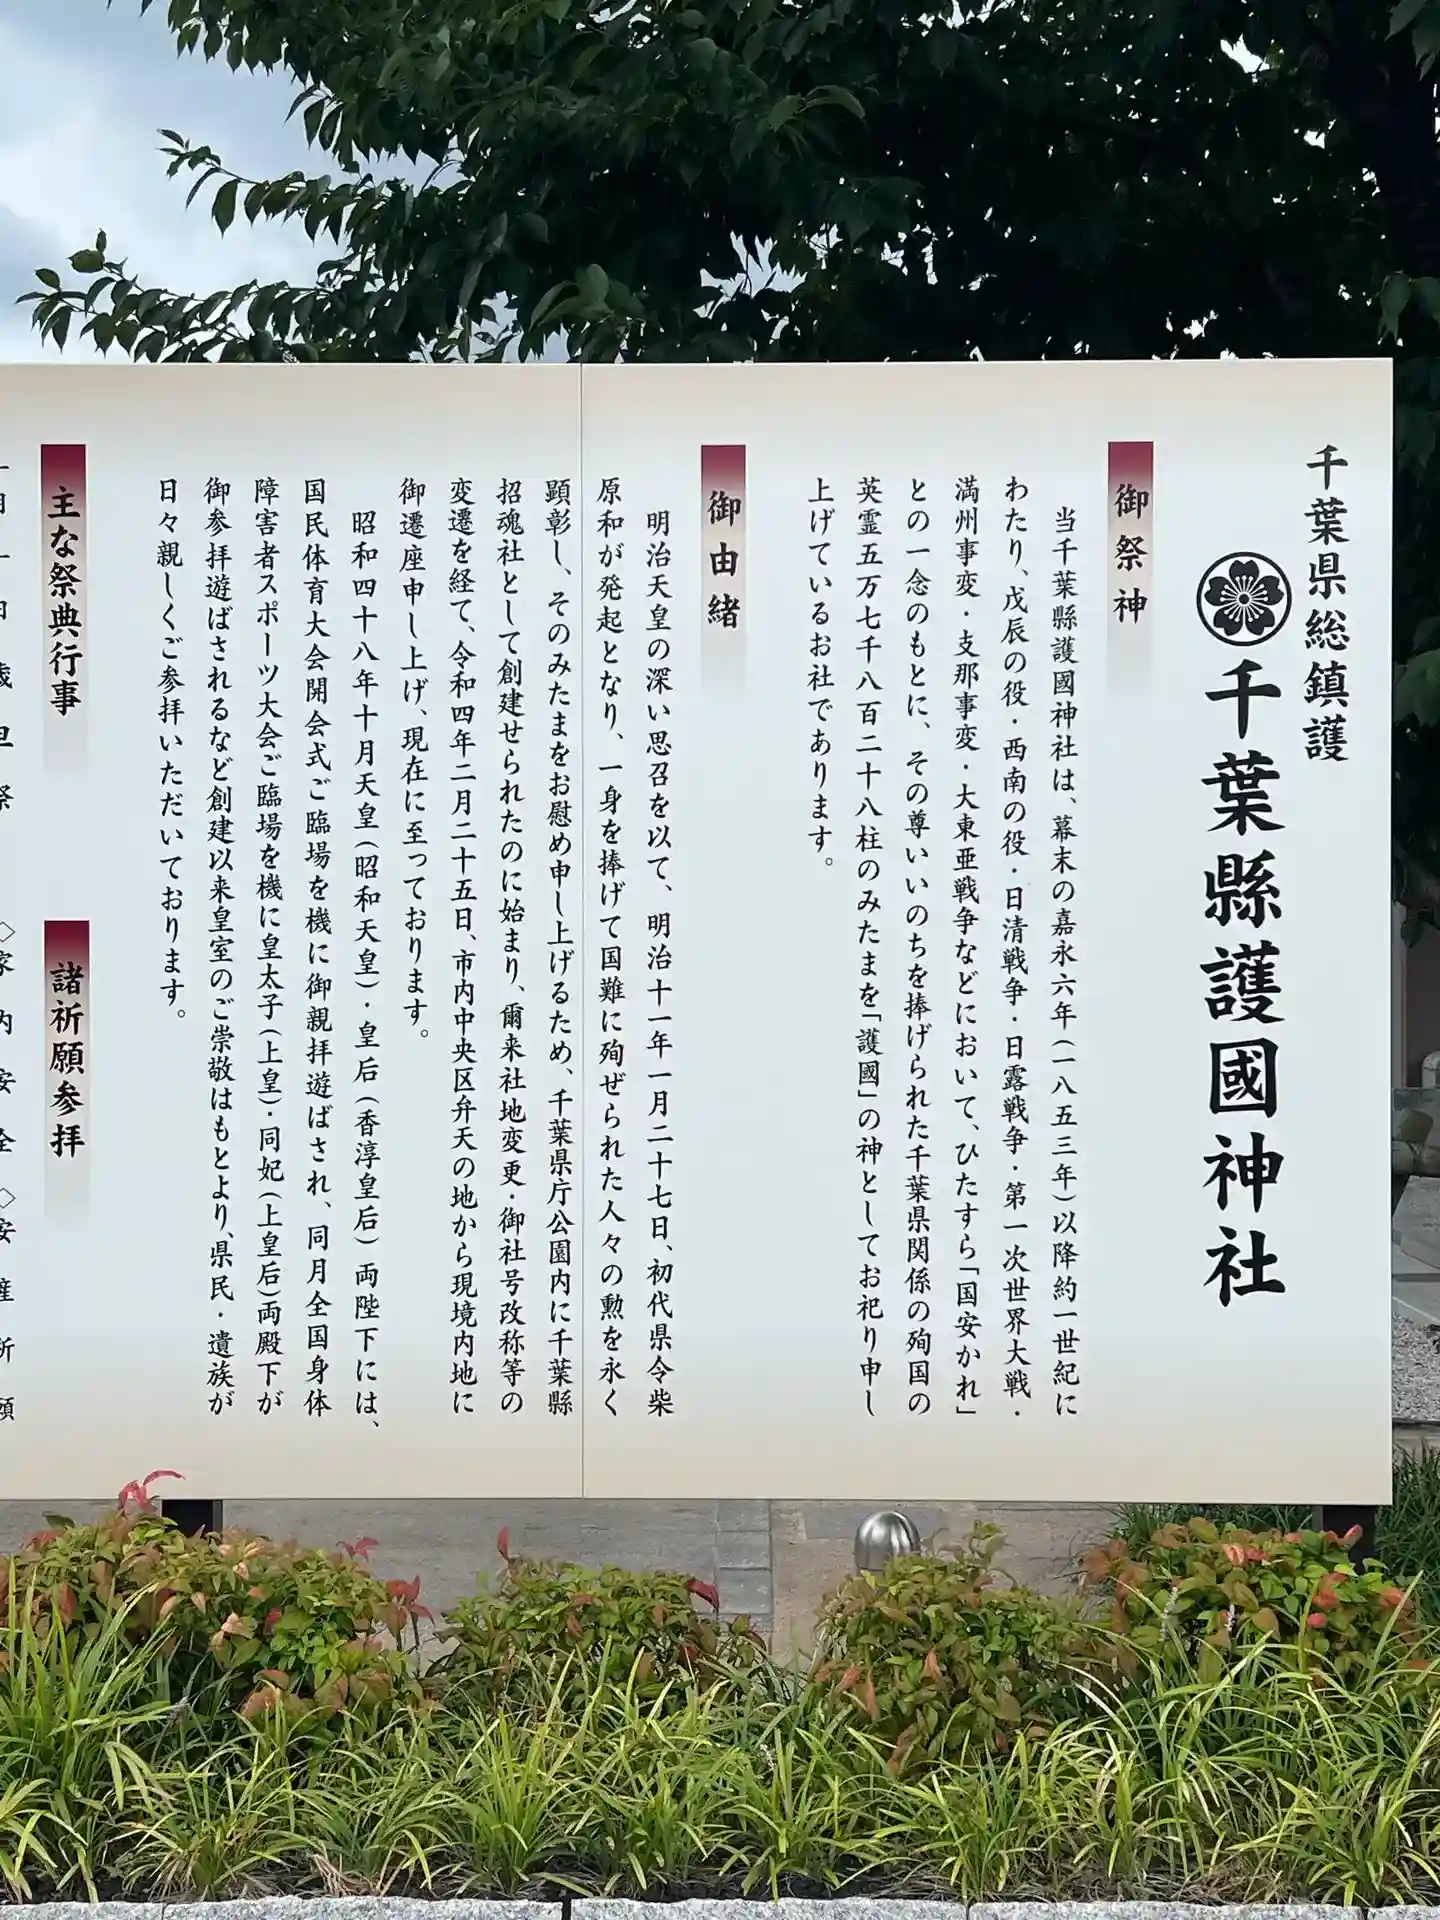 千葉県総鎮護
千葉縣護國神社
御祭神
当千葉縣護國神社は、幕末の嘉永六年(一八五三年)以降約一世紀に
わたり、戊辰の役・西南の役・日清戦争・日露戦争・第一次世界大戦・
満州事変・支那事変・大東亜戦争などにおいて、ひたすら「国安かれ」
との一念のもとに、その尊いいのちを捧げられた千葉県関係の殉国の
英霊五万七千八百二十八柱のみたまを「護國」の神としてお祀り申し
上げているお社であります。
御由緒
明治天皇の深い思召を以て、明治十一年一月二十七日、初代県令柴
原和が発起となり、一身を捧げて国難に殉ぜられた人々の勲を永く
顕彰し、そのみたまをお慰め申し上げるため、千葉県庁公園内に千葉縣
招魂社として創建せられたのに始まり、爾来社地変更・御社号改称等の
変遷を経て、令和四年二月二十五日、市内中央区弁天の地から現境内地に
御遷座申し上げ、現在に至っております。
昭和四十八年十月天皇(昭和天皇)・皇后(香淳皇后)両陛下には、
国民体育大会開会式ご臨場を機に御親拝遊ばされ、同月全国身体
障害者スポーツ大会ご臨場を機に皇太子(上皇)・同妃(上皇后)両殿下が
御参拝遊ばされるなど創建以来皇室のご崇敬はもとより、県民・遺族が
日々親しくご参拝いただいております。
主な祭典行事
諸祈願参拝
歳旦祭
◇家内安全 ◇安産祈願